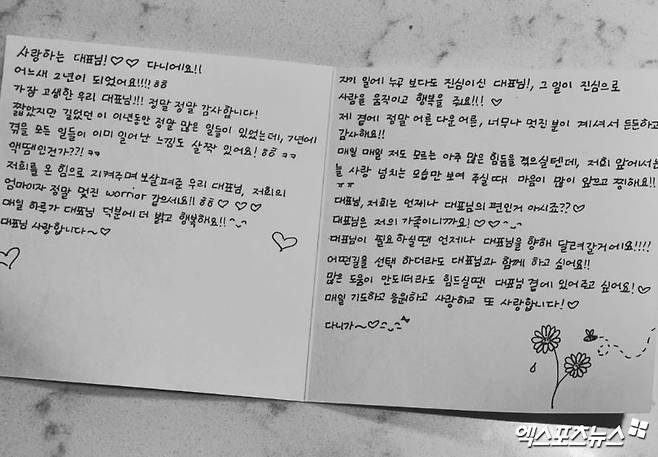 사랑하는 대표님!♡♡ 다니에요!!
어느새 2년이 되었어요!!!! ㅎㅎ
가장 고생한 우리 대표님!!! 정말 정말 감사합니다!
짧았지만 길었던 이 이년동안 정말 많은 일들이 있었는데, 7년에
겪을 모든 일들이 이미 일어난 느낌도 살짝 있어요! ㅎㅎ ㅋㅋ
액땜인건가??! ㅋㅋ
저희를 온 힘으로 지켜주며 보살펴준 우리 대표님, 저희의
엄마이자 정말 멋진 worrior 같으세요!! ㅎㅎ ♡ ♡ ♡
매일 하루가 대표님 덕분에 더 밝고 행복해요!! ^_^
대표님 사랑합니다~♡
자기 일에 누구 보다도 진심이신 대표님!, 그 일이 진심으로
사람을 움직이고 행복을 줘요!!! ♡
제 곁에 정말 어른 다운 어른, 너무나 멋진 분이 계셔서 든든하고
감사해요!!
매일 매일 저도 모르는 아주 많은 힘듦을 겪으실텐데, 저희 앞에서는
늘 사랑 넘치는 모습만 보여 주실때 마음이 많이 앞으고 찡해요!!
ㅠㅠ
대표님, 저희는 언제나 대표님의 편인거 아시죠??♡
대표님은 저의 가족이니까요! ♡♡^_^
대표님이 필요하실땐 언제나 대표님을 향해 달려갈거에요!!!!
어떤길을 선택 하더라도 대표님과 함께 하고 싶어요!!
많은 도움이 안되더라도 힘드실때 대표님 곁에 있어주고 싶어요!♡
매일 기도하고 응원하고 사랑하고 또 사랑합니다!♡
다니가~♡^_^
엑스포츠뉴스